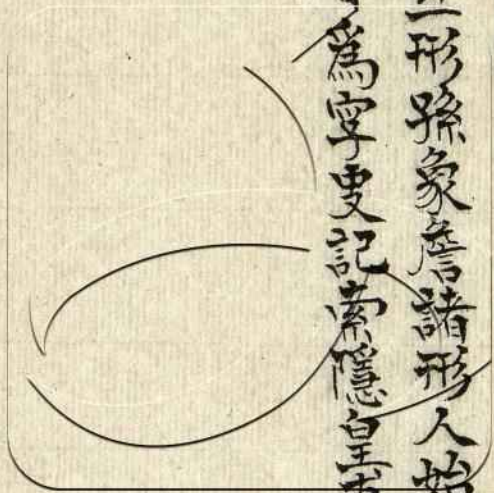 形孫象詹諸形人始
為字史記索隱皇